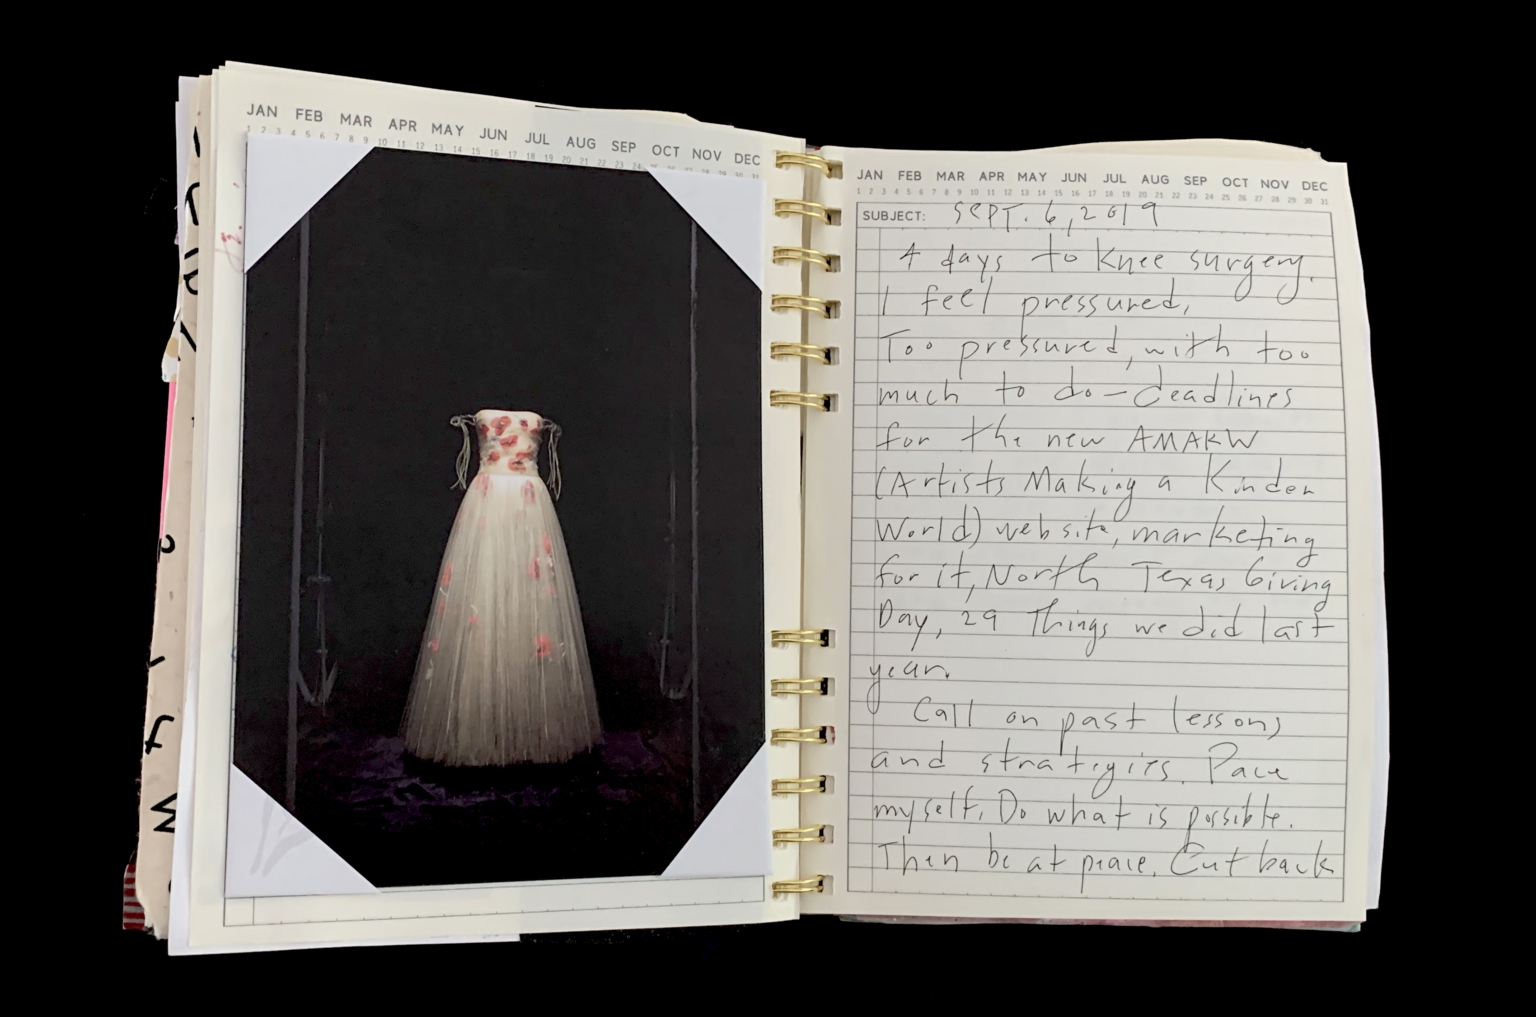 JAN FEB MAR APR MAY JUN JUL AUG SEP OCT NOV DEC
1 2 3 4 5 6 7 8 9 10 11 12 13 14 15 16 17 18 19 20 21 22 23 24
JAN FEB MAR APR MAY JUN JUL AUG SEP OCT NOV DEC
1 2 3 4 5 6 7 8 9 10 11 12 13 14 15 16 17 18 19 20 21 22 23 24 25 26 27 28 29 30 31
SUBJECT: SEPT. 6, 2019
4 days to knee surgery.
I feel pressured,
Too pressured, with too
much to do - deadlines
for the new AMAKW
(Artists Making a Kinder
World) website, marketing
for it, North Texas Giving
Day, 29 Things we did last
year.
Call on past lessons
and strategies. Pace
myself. Do what is possible.
Then be at peace. Cut back